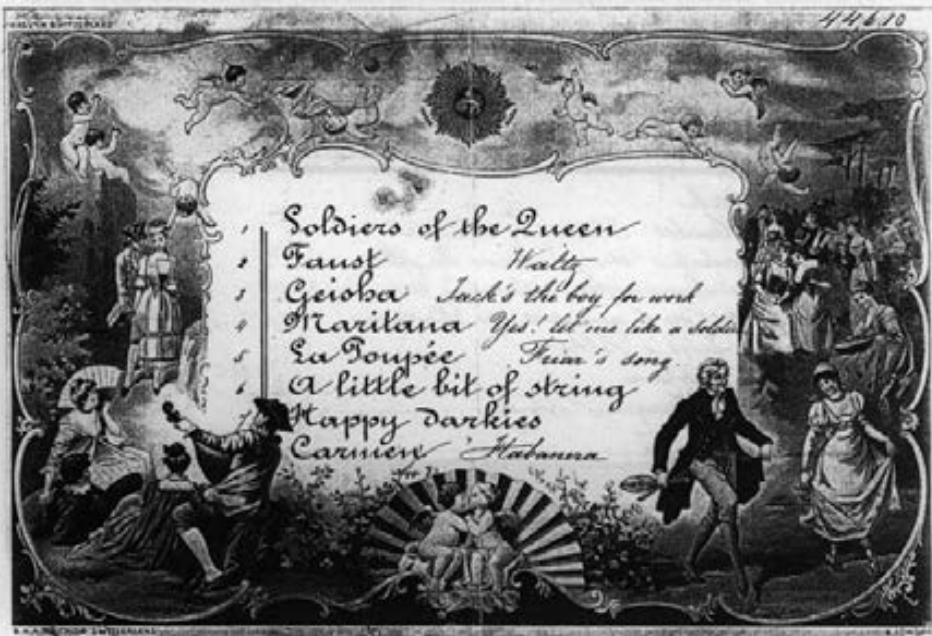 44610
1 Soldiers of the Queen
2 Faust Waltz
3 Geisha Jack's the boy for work
4 Maritana Yes! let me like a soldier
5 La Poupée Friar's song.
6 A little bit of string
7 Happy Darkies
Carmen Habanera
SWITZERLAND